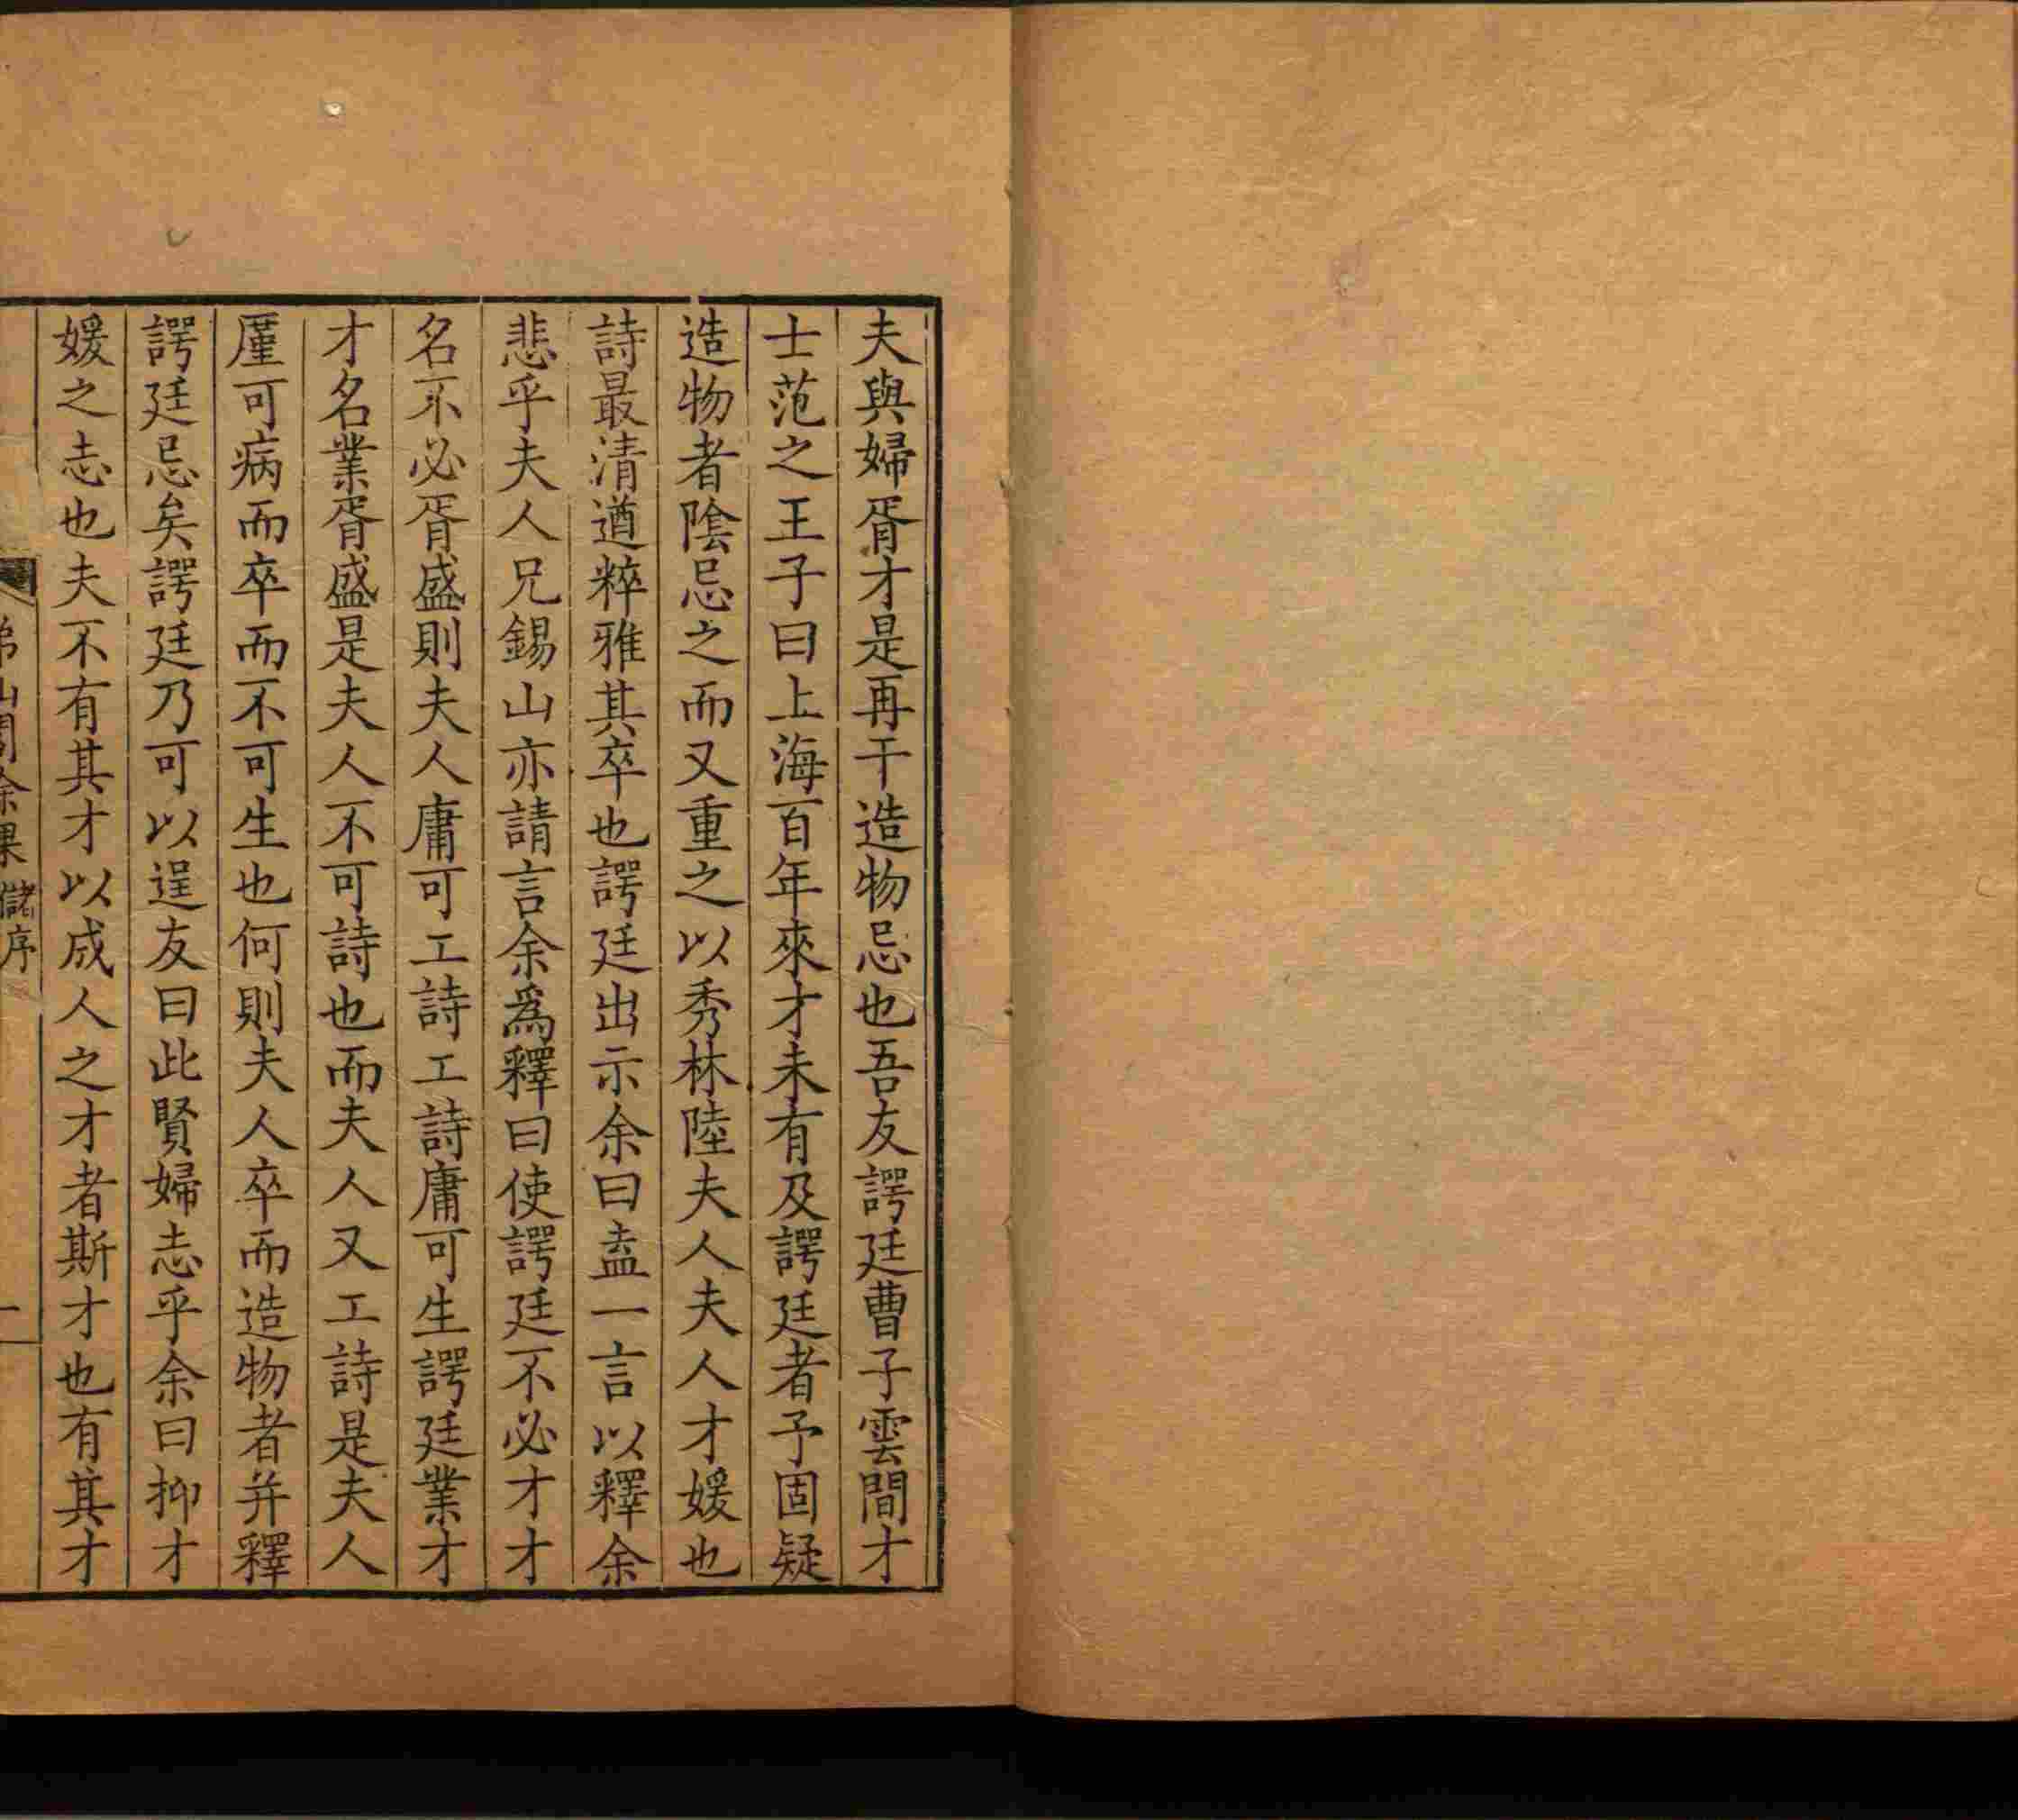 夫與婦胥才是再干造物忌也吾友諤廷曹子雲間才
士范之王子曰上海百年來才未有及諤廷者予固疑
造物者陰忌之而又重之以秀林陸夫人夫人才媛也
詩最清遒粹雅其卒也諤廷出示余曰盍一言以釋余
悲乎夫人兄錫山亦請言余為釋曰使諤廷不必才才
名不必胥盛則夫人庸可工詩工詩庸可生諤廷業才
才名業胥盛是夫人不可詩也而夫人又工詩是夫人
廑可病而卒而不可生也何則夫人卒而造物者并釋
諤廷忌矣諤廷乃可以逞友曰此賢婦志乎余曰抑才
媛之志也夫不有其才以成人之才者斯才也有其才
山閣餘果 儲序
一